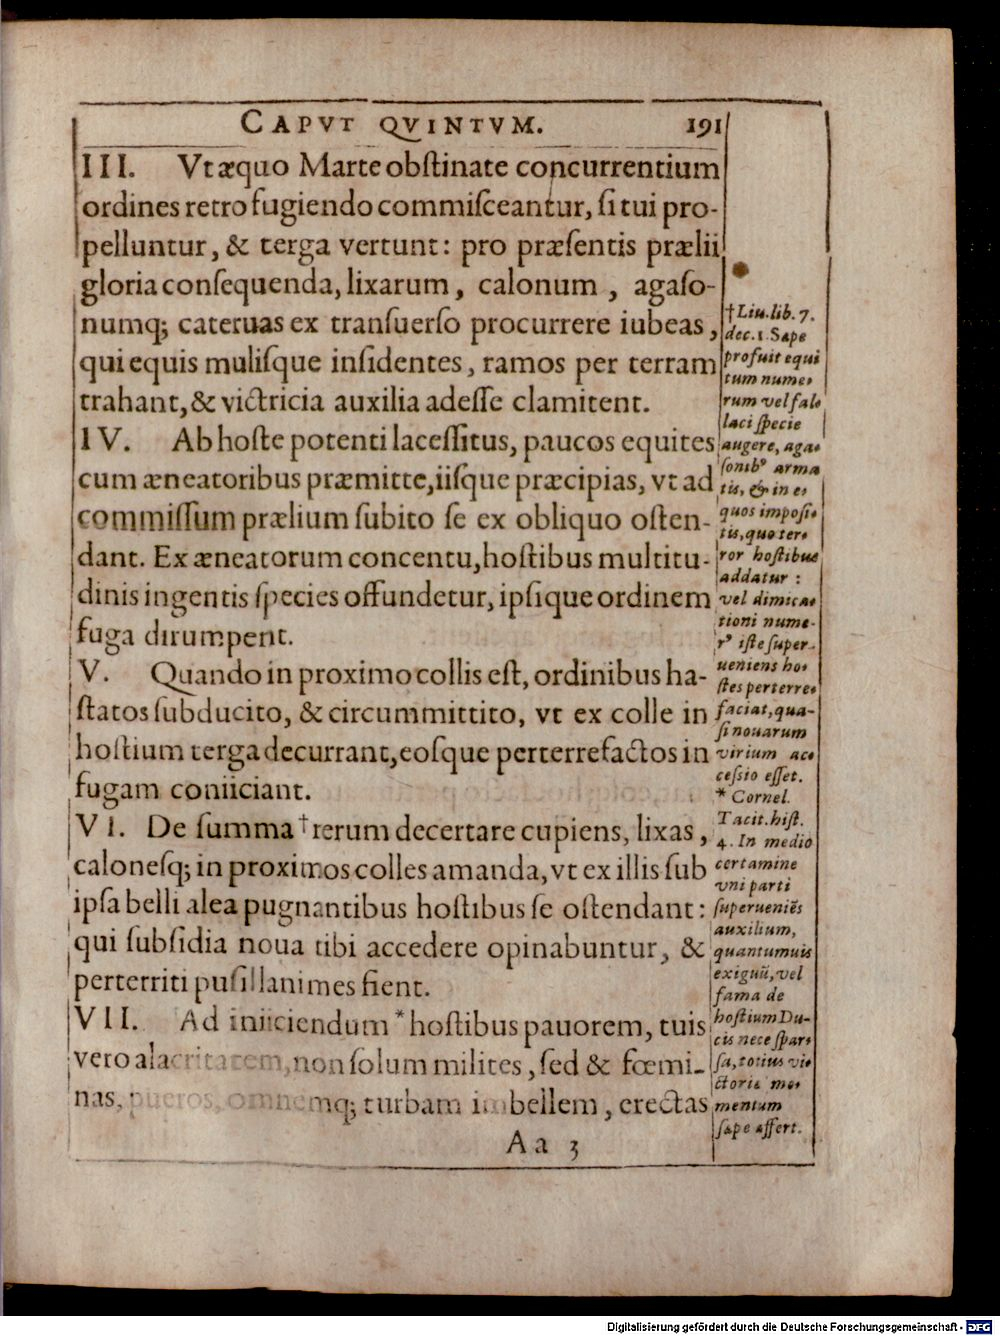 CAPVT QVINTVM. 191
III. Vt æquo Marte obſtinate concurrentium
ordines retro fugiendo commiſceantur, ſi tui pro-
pelluntur, & terga vertunt: pro præſentis prælii
gloria conſequenda, lixarum, calonum, agaſo-
numq; cateruas ex tranſuerſo procurrere iubeas,
qui equis muliſque inſidentes, ramos per terram
trahant, & victricia auxilia adeſſe clamitent.
IV. Ab hoſte potenti laceſſitus, paucos equites
cum æneatoribus præmitte, iiſque præcipias, vt ad
commiſſum prælium ſubito ſe ex obliquo oſten-
dant. Ex æneatorum concentu, hoſtibus multitu-
dinis ingentis ſpecies offundetur, ipſique ordinem
fuga dirumpent.
V. Quando in proximo collis eſt, ordinibus ha-
ſtatos ſubducito, & circummittito, vt ex colle in
hoſtium terga decurrant, eoſque perterrefactos in
fugam coniiciant.
VI. De ſumma † rerum decertare cupiens, lixas,
caloneſq; in proximos colles amanda, vt ex illis ſub
ipſa belli alea pugnantibus hoſtibus ſe oſtendant:
qui ſubſidia noua tibi accedere opinabuntur, &
perterriti puſillanimes fient.
VII. Ad iniiciendum * hoſtibus pauorem, tuis
vero alacritatem, non ſolum milites, ſed & fœmi-
nas, pueros, omnemq; turbam imbellem, erectas
Aa 3
† Liu. lib. 7.
dec. 1. Sæpe
profuit equi
tum nume-
rum vel fal-
laci ſpecie
augere, aga-
ſonibꝰ arma
tis, & in e-
quos impoſi-
tis, quo ter-
ror hoſtibus
addatur :
vel dimica-
tioni nume-
rꝰ iſte ſuper-
ueniens ho-
ſtes perterre-
faciat, qua-
ſi nouarum
virium ac-
ceſsio eſſet.
* Cornel.
Tacit. hiſt.
4. In medio
certamine
vni parti
ſuperueniẽs
auxilium,
quantumuis
exiguũ, vel
fama de
hoſtium Du-
cis nece ſpar-
ſa, totius vi-
ctoriæ mo-
mentum
ſæpe affert.
Digitalisierung gefördert durch die Deutsche Forschungsgemeinschaft - DFG